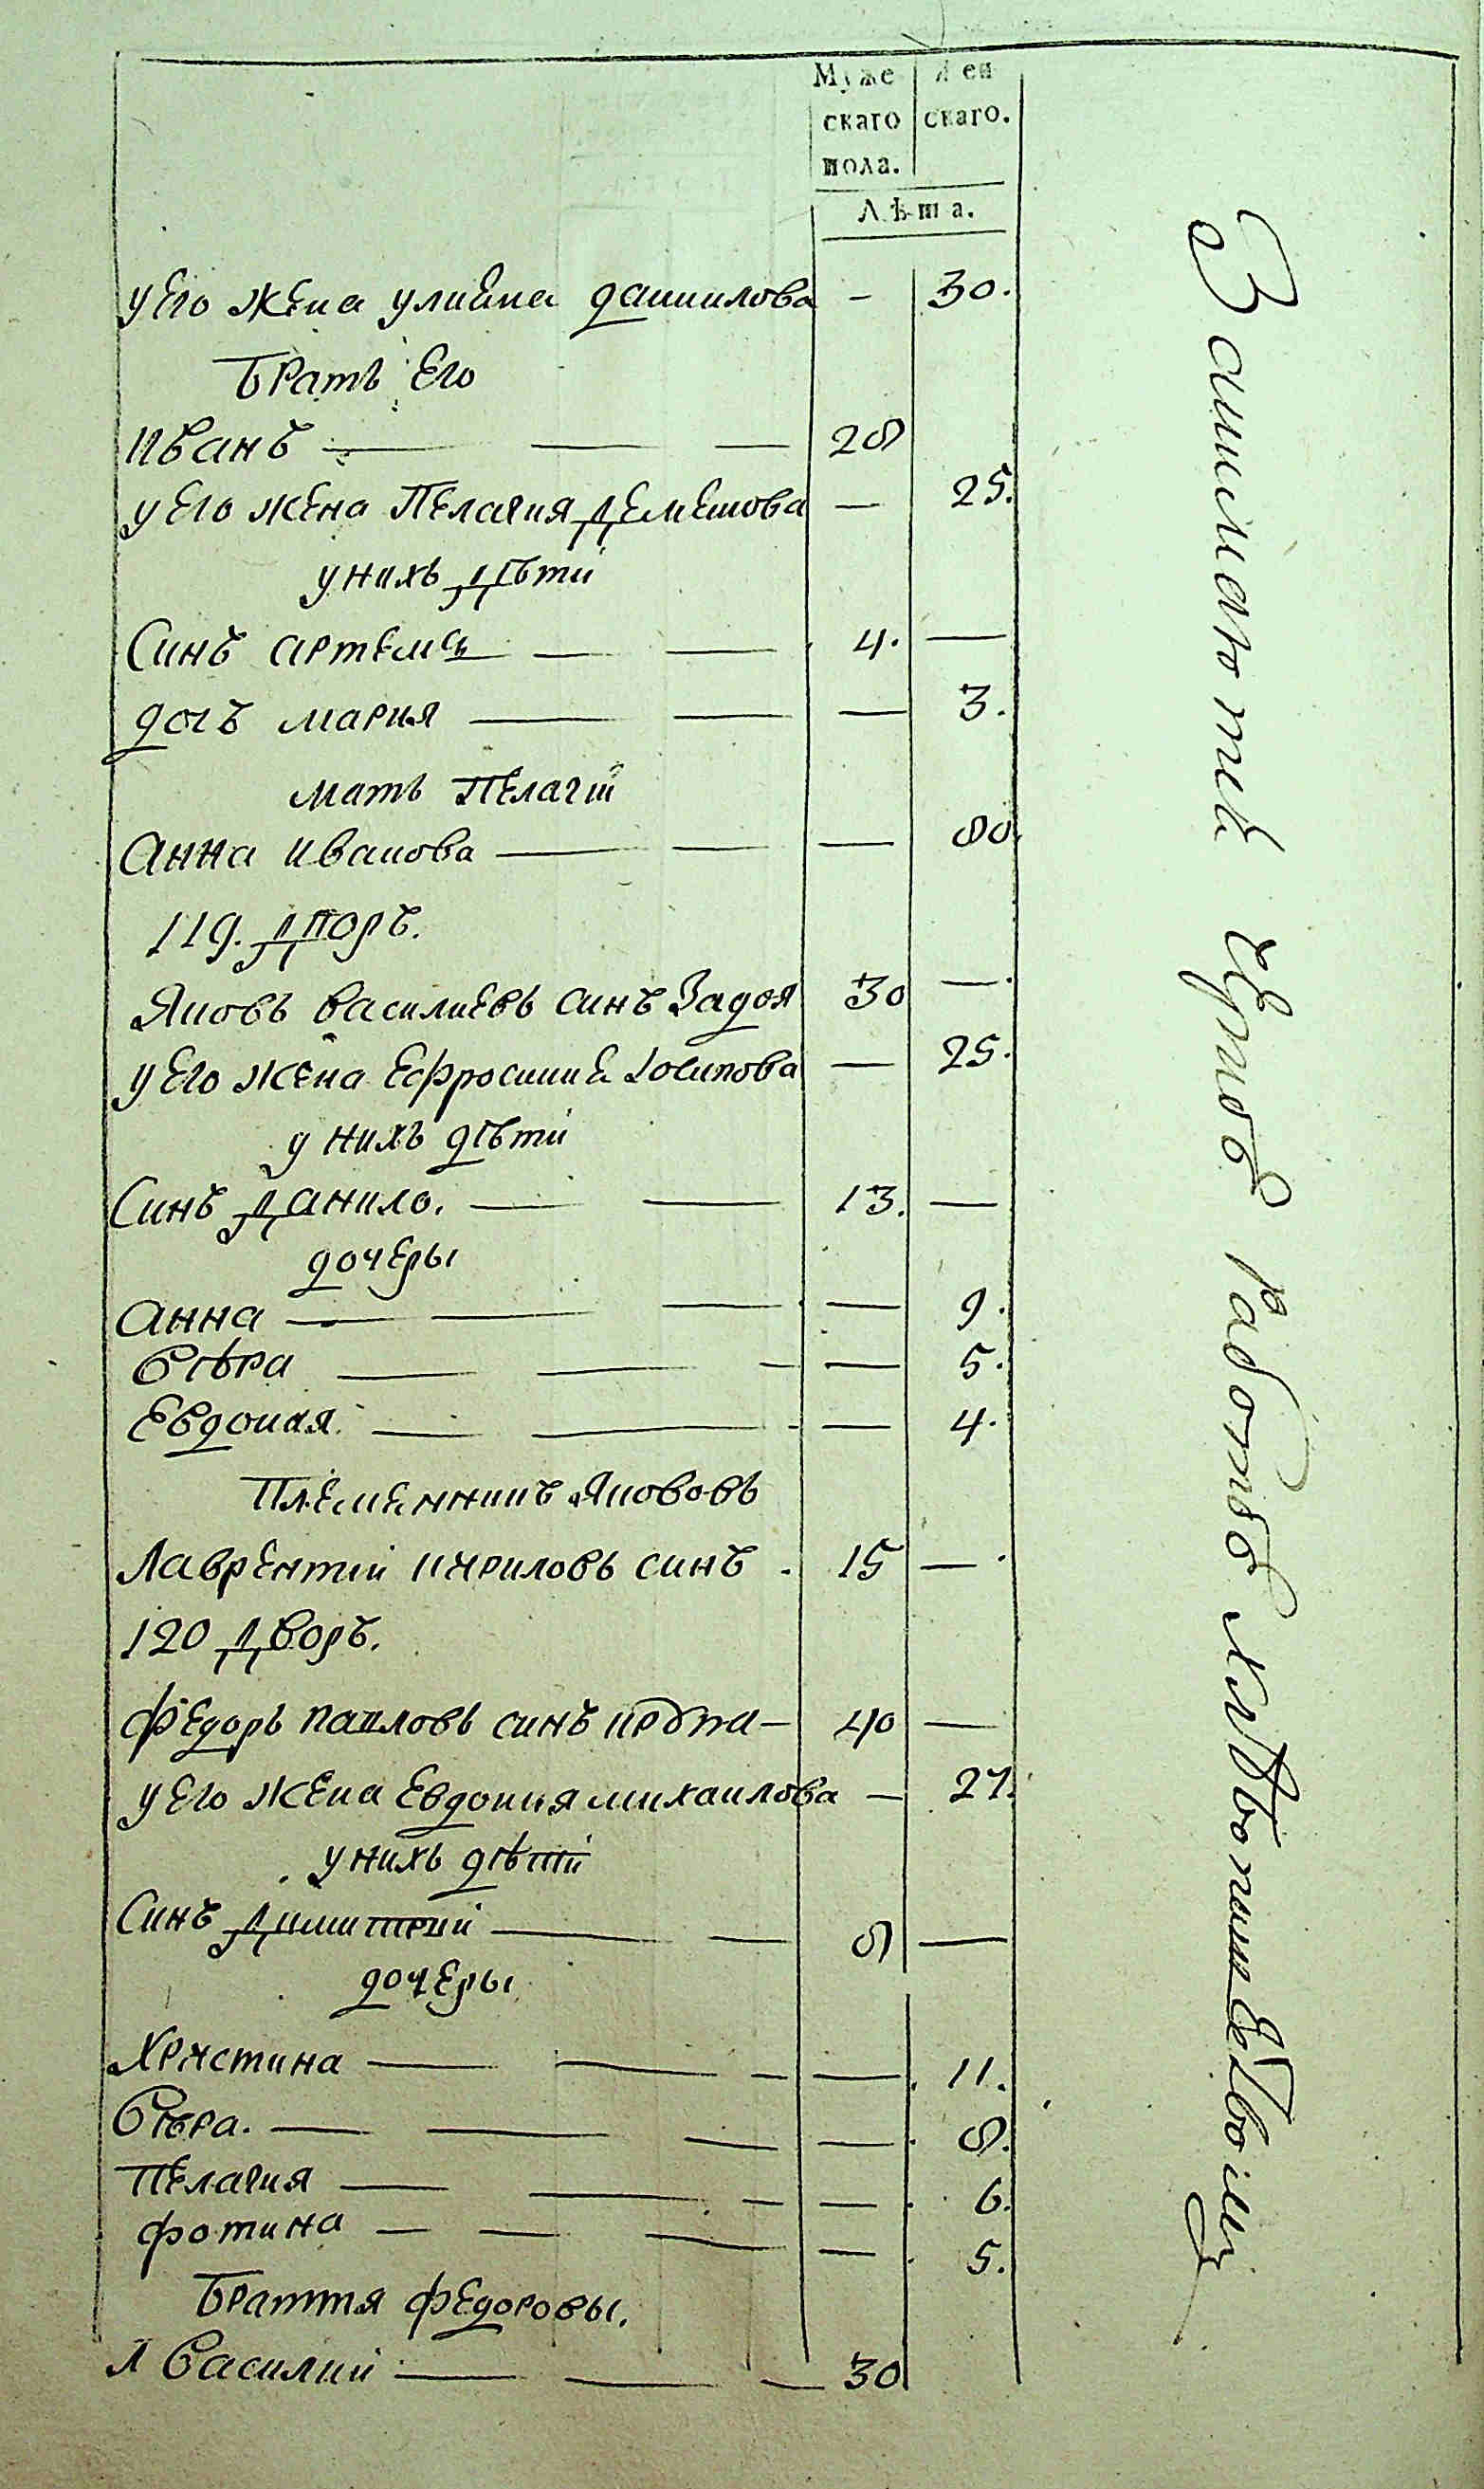 Муже Жен
скаго скаго.
пола.
Лѣта.
у Его жена улиана данилова — 30.
Братъ Его
иванъ — — — 28
у Его жена Пелагия Демешова — 25.
у нихъ Дѣти
Синъ артемъ — — 4. —
дочъ мария — — — 3.
мать Пелагіи
Анна иванова — — — 80.
119. Дворъ.
Яковъ василиевъ синъ Задоя 30 —
у Его жена Ефросиния Іосипова — 25.
у нихъ дѣти
Синъ Данило. — — 13. —
дочеры
Анна — — — — 9.
Вѣра — — — — 5.
Евдокия — — — 4.
Племенникъ Якововъ
Лаврентий кириловъ синъ 15 —
120 Дворъ.
Федоръ павловъ синъ 40 —
у Его жена Евдокия михаилова — 27.
у нихъ дѣти
Синъ Димитрий — — 8 —
дочеры
Христина — — — — 11.
Вѣра. — — — — 8.
Пелагия — — — — 6.
Фотина — — — — 5.
Браття Федоровы.
1 Василий — — — 30
Занимаются работою хлѣбопашественною